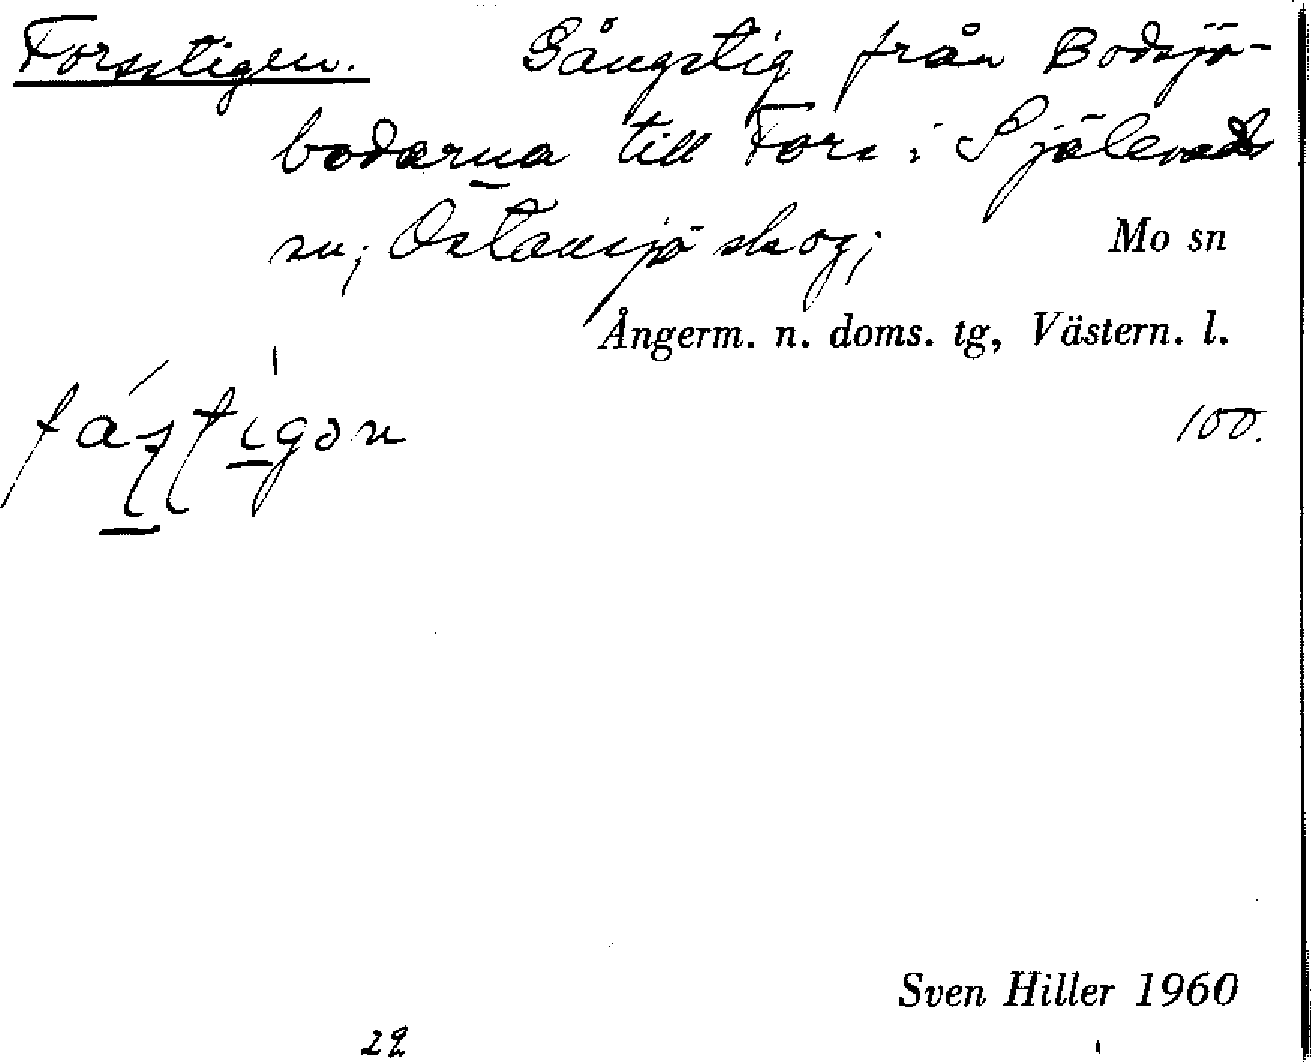 Forsstigen. Gångstig från Bodsjö-
bodarna till Fors i Själevads
sn; Östansjö skog; Mo sn
Ångerm. n. doms. tg, Västern. l.
100.
Sven Hiller 1960